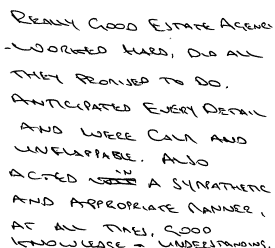 REALLY GOOD ESTATE AGENC
- WORKED HARD, DID ALL
THEY PROMISED TO DO.
ANTICIPATED EVERY DETAIL
AND WERE CALM AND
UNFLAPPABLE. ALSO
ACTED IN A SYMPATHETIC
AND APPROPRIATE MANNER,
AT ALL TIMES, GOOD
KNOWLEDGE + UNDERSTANDING.